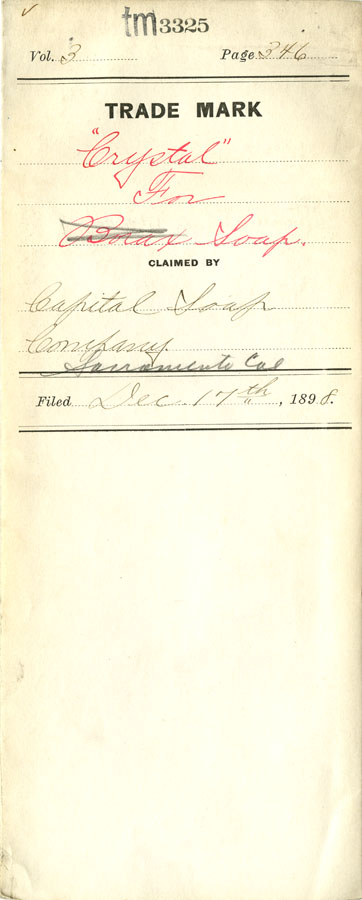 tm3325
Vol. 3 Page 346
TRADE MARK
"Crystal"
For
Borax Soap.
CLAIMED BY
Capital Soap
Company
Sacramento Cal
Filed Dec 17th, 1898.